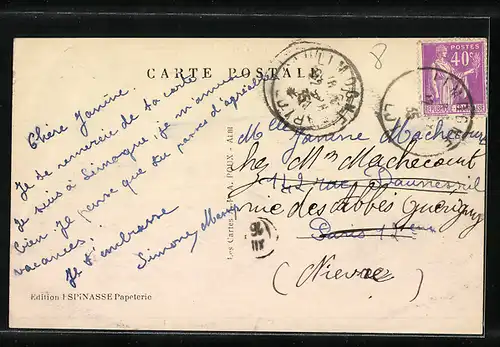 CARTE POSTALE
POSTES
40c
8
Chère Janine.
Je te remercie de ta carte
Je suis à Limoge. je m'amuse
bien. je pense que tu passes d'agréables
vacances.
Je t'embrasse
Simone
Edition ESPINASSE Papeterie
Les Cartes A. POUX - Albi
Mlle Janine Machecourt
chez Mr Machecourt
142 rue Daumesnil
rue des abbés Guérigny
Paris
(Nievre)